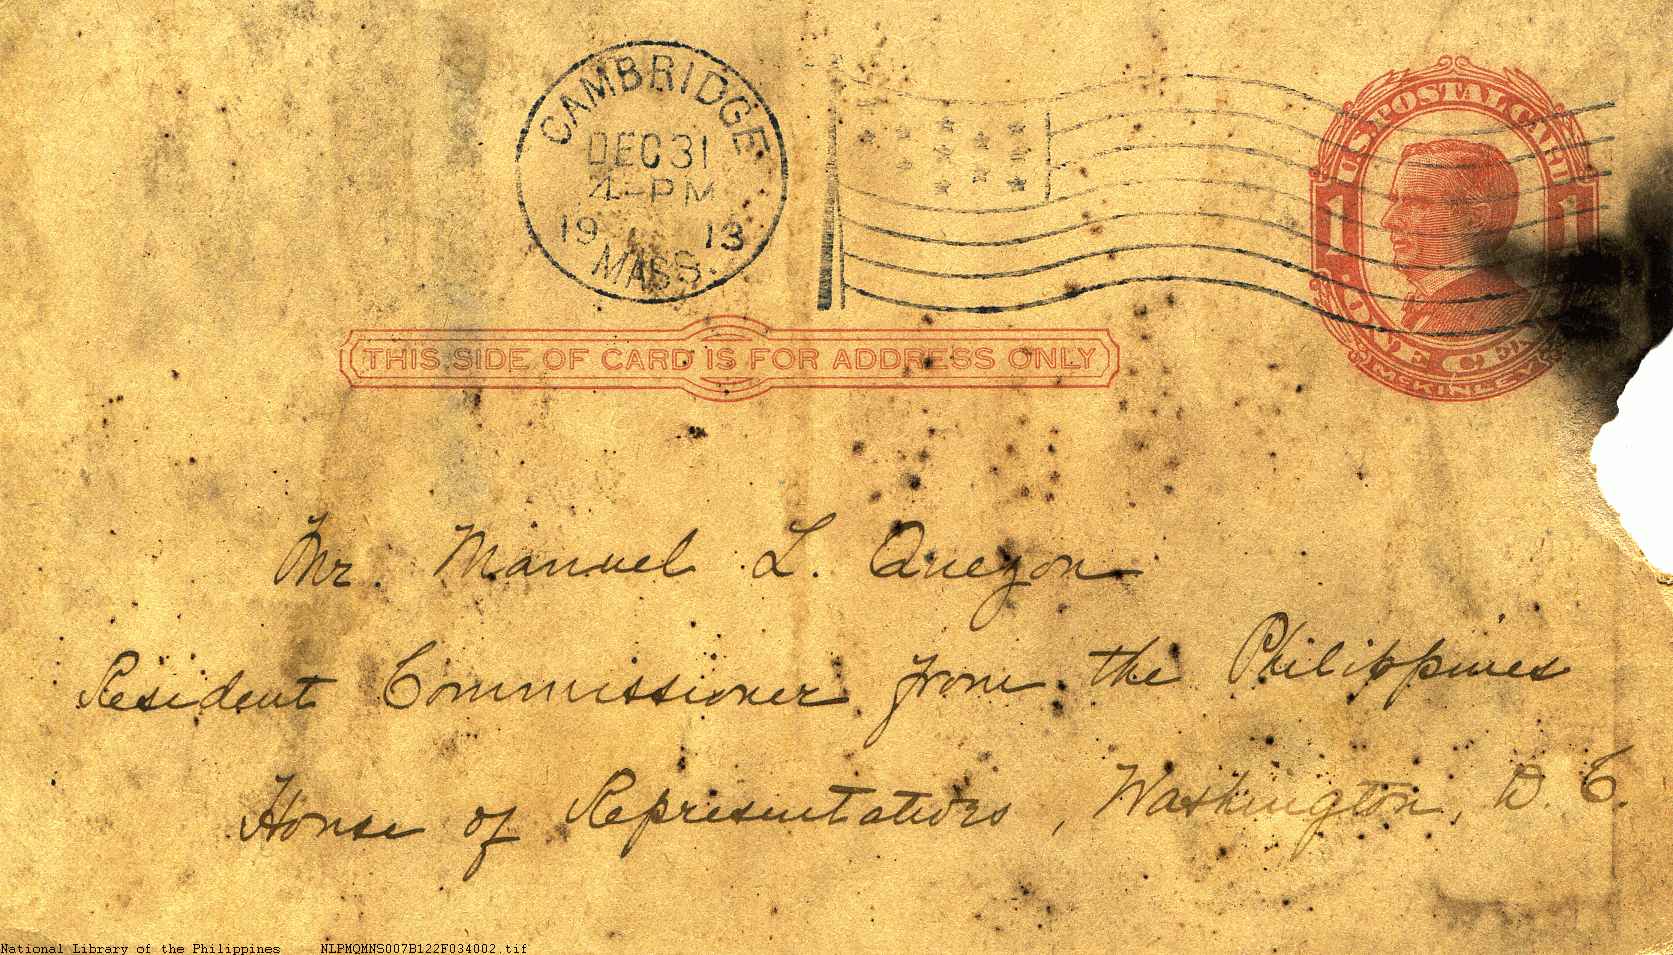 CAMBRIDGE
DEC 31
4-PM
1913
MASS.
U.S. POSTAL CARD
1 1
ONE CENT
McKINLEY
THIS SIDE OF CARD IS FOR ADDRESS ONLY
Mr. Manuel L. Quezon
Resident Commissioner from the Philippines
House of Representatives, Washington, D. C.
National Library of the Philippines NLPMQMNS007B122F034002.tif